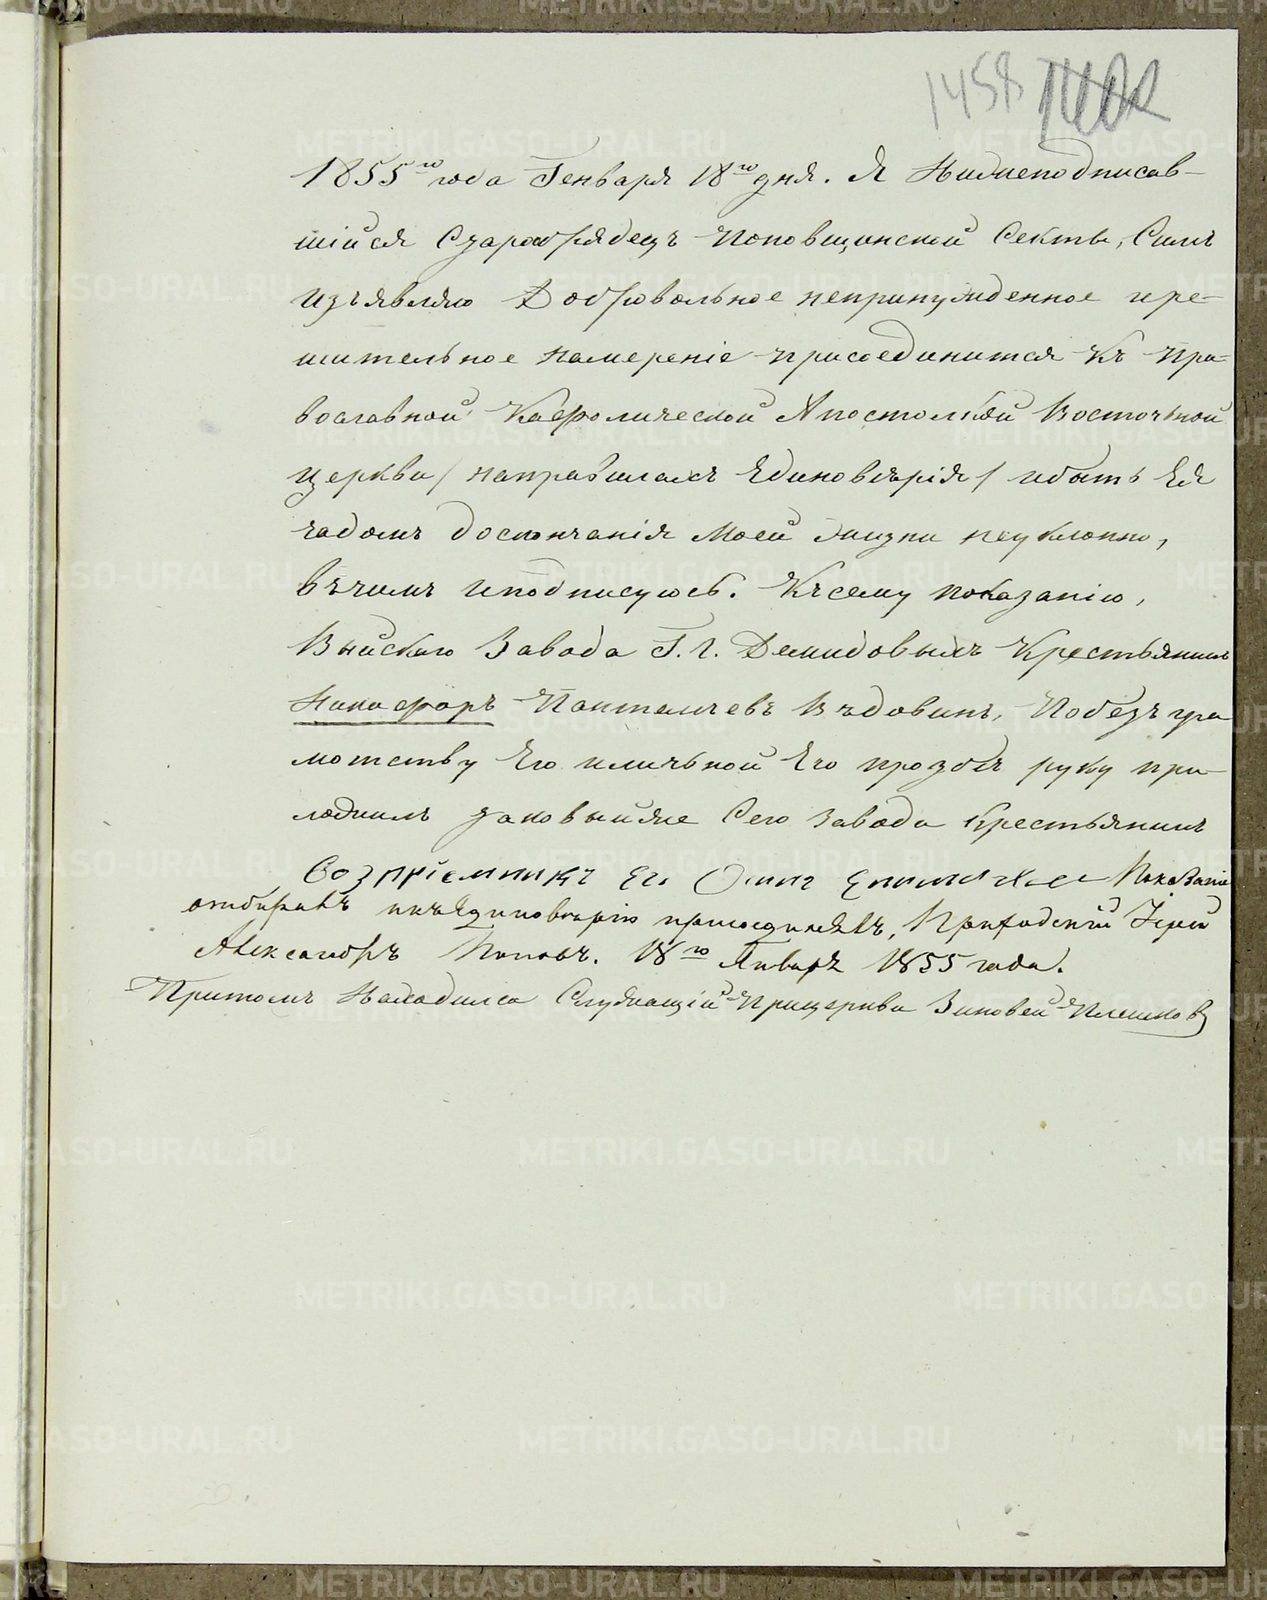 1458
1855го года Генваря 18го дня. Я Нижеподписав-
шійся Старообрядецъ Поповщинской Секты, Симъ
изъявляю Добровольное непринужденное ире-
шительное намереніе присоединится Къ Пра-
вославной Кафолической Апостольской Восточной
церкви / направилахъ Единоверія / ибыть Ея
чадомъ доскончанія Моей жизни неуклонно,
вчемъ иподписуюсь. Къ сему показанію,
Выйскаго Завода Г. Г. Демидовыхъ Крестьянинъ
Никифоръ Пантелеевъ Вдовинъ, Побезъ гра
мотству Его иличьной Его прозбе руку при-
ложилъ таковыйже Сего Завода Крестьянинъ
Воспріемникъ Его Осипъ Показаніе
отобралъ икъединоверію присоединялъ, Приходскій Іерей
Александръ Поповъ. 18го Января 1855 года.
Притомъ Находился Служащій Прицеркви Зиновей Плешков